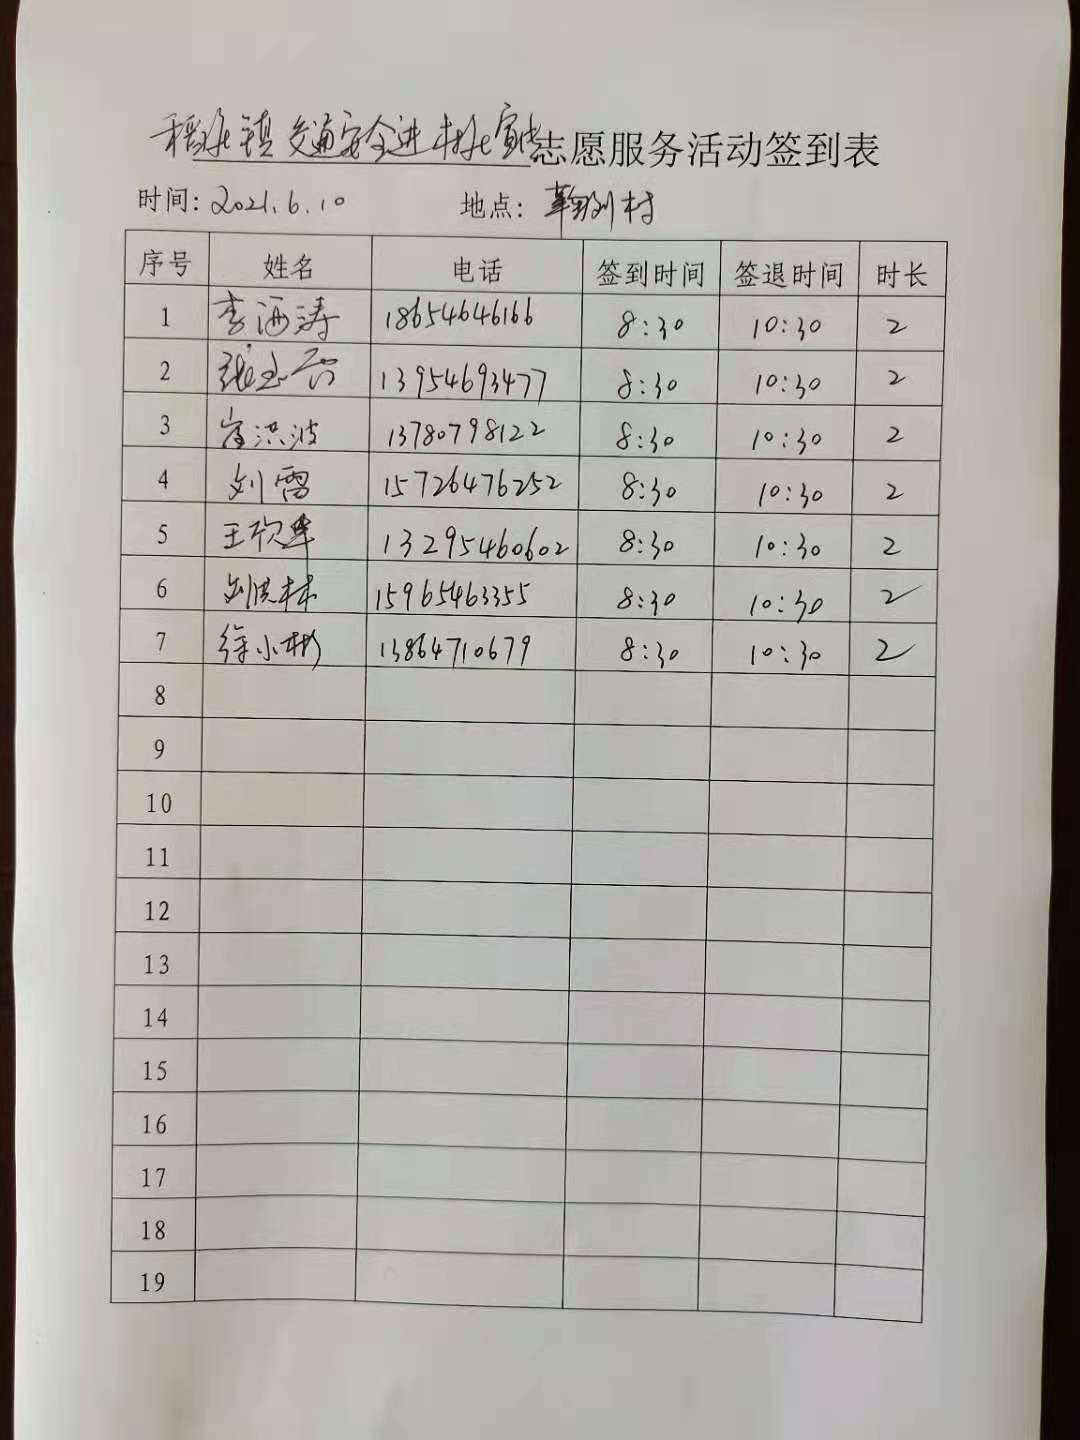 稻庄镇交通安全进村庄宣传志愿服务活动签到表
时间：2021.6.10 地点： 村
序号 姓名 电话 签到时间 签退时间 时长
1 李洒涛 18654646166 8:30 10:30 2
2 张 13954693477 8:30 10:30 2
3 洪波 13780798122 8:30 10:30 2
4 刘雷 15726476252 8:30 10:30 2
5 王 13295460602 8:30 10:30 2
6 刘洪林 15965463355 8:30 10:30 2
7 徐小彬 13864710679 8:30 10:30 2
8
9
10
11
12
13
14
15
16
17
18
19